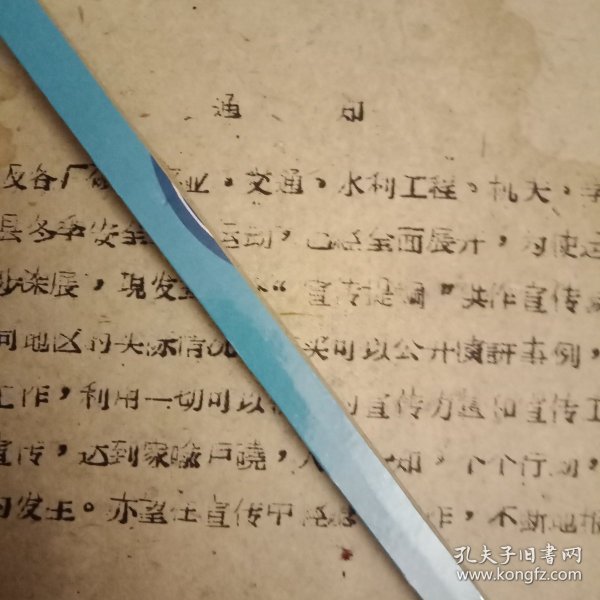 通 知
及各厂 业,交通,水利工程。机关,学
县冬季安全 运动,已经全面展开,为使运
步深展,现发 “宣传提纲”供作宣传
同地区的实际情况 可以公开演评事例,
工作,利用一切可以 的宣传力量和宣传工
宣传,达到家喻户晓,人 知,个个行动,
的发生。亦望在宣传中 作,不断地
孔夫子旧书网
www.kongfz.com